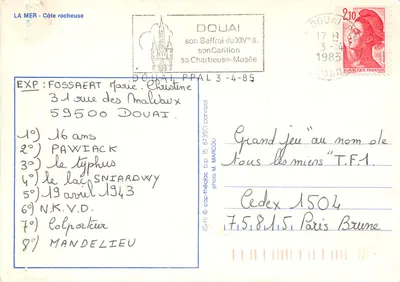 LA MER - Côte rocheuse
DOUAI
son Beffroi du XIVe s.
son Carillon
sa Chartreuse-Musée
DOUAI PPAL 3-4-85
DOUAI
17 H
3-4
1985
2,10
EXP: FOSSAERT Marie-Christine
31 rue des Malvaux
59500 DOUAI.
1°) 16 ans
2°) PAWIACK
3°) le typhus
4°) le lac SNIARDWY
5°) 19 avril 1943
6°) N.K.V.D.
7°) Colporteur
8°) MANDELIEU
photo M. MARCOU
Grand jeu "au nom de
tous les miens" T.F1.
Cedex 1504
75.815. Paris Brune